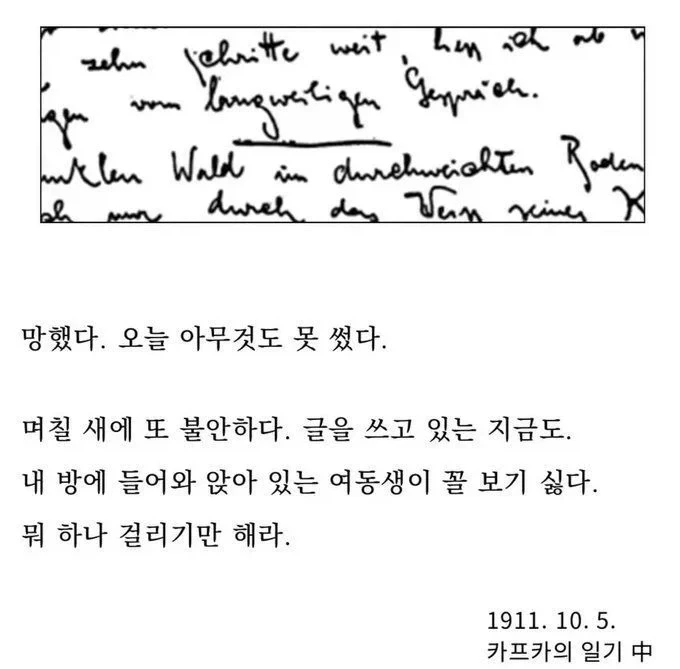 zehn Schritte weit, hen ich ab
gen vom langweiligen Gespräch.
unklen Wald im durchweichten Boden
ch nur durch das Weiss seines K
망했다. 오늘 아무것도 못 썼다.
며칠 새에 또 불안하다. 글을 쓰고 있는 지금도.
내 방에 들어와 앉아 있는 여동생이 꼴 보기 싫다.
뭐 하나 걸리기만 해라.
1911. 10. 5.
카프카의 일기 中